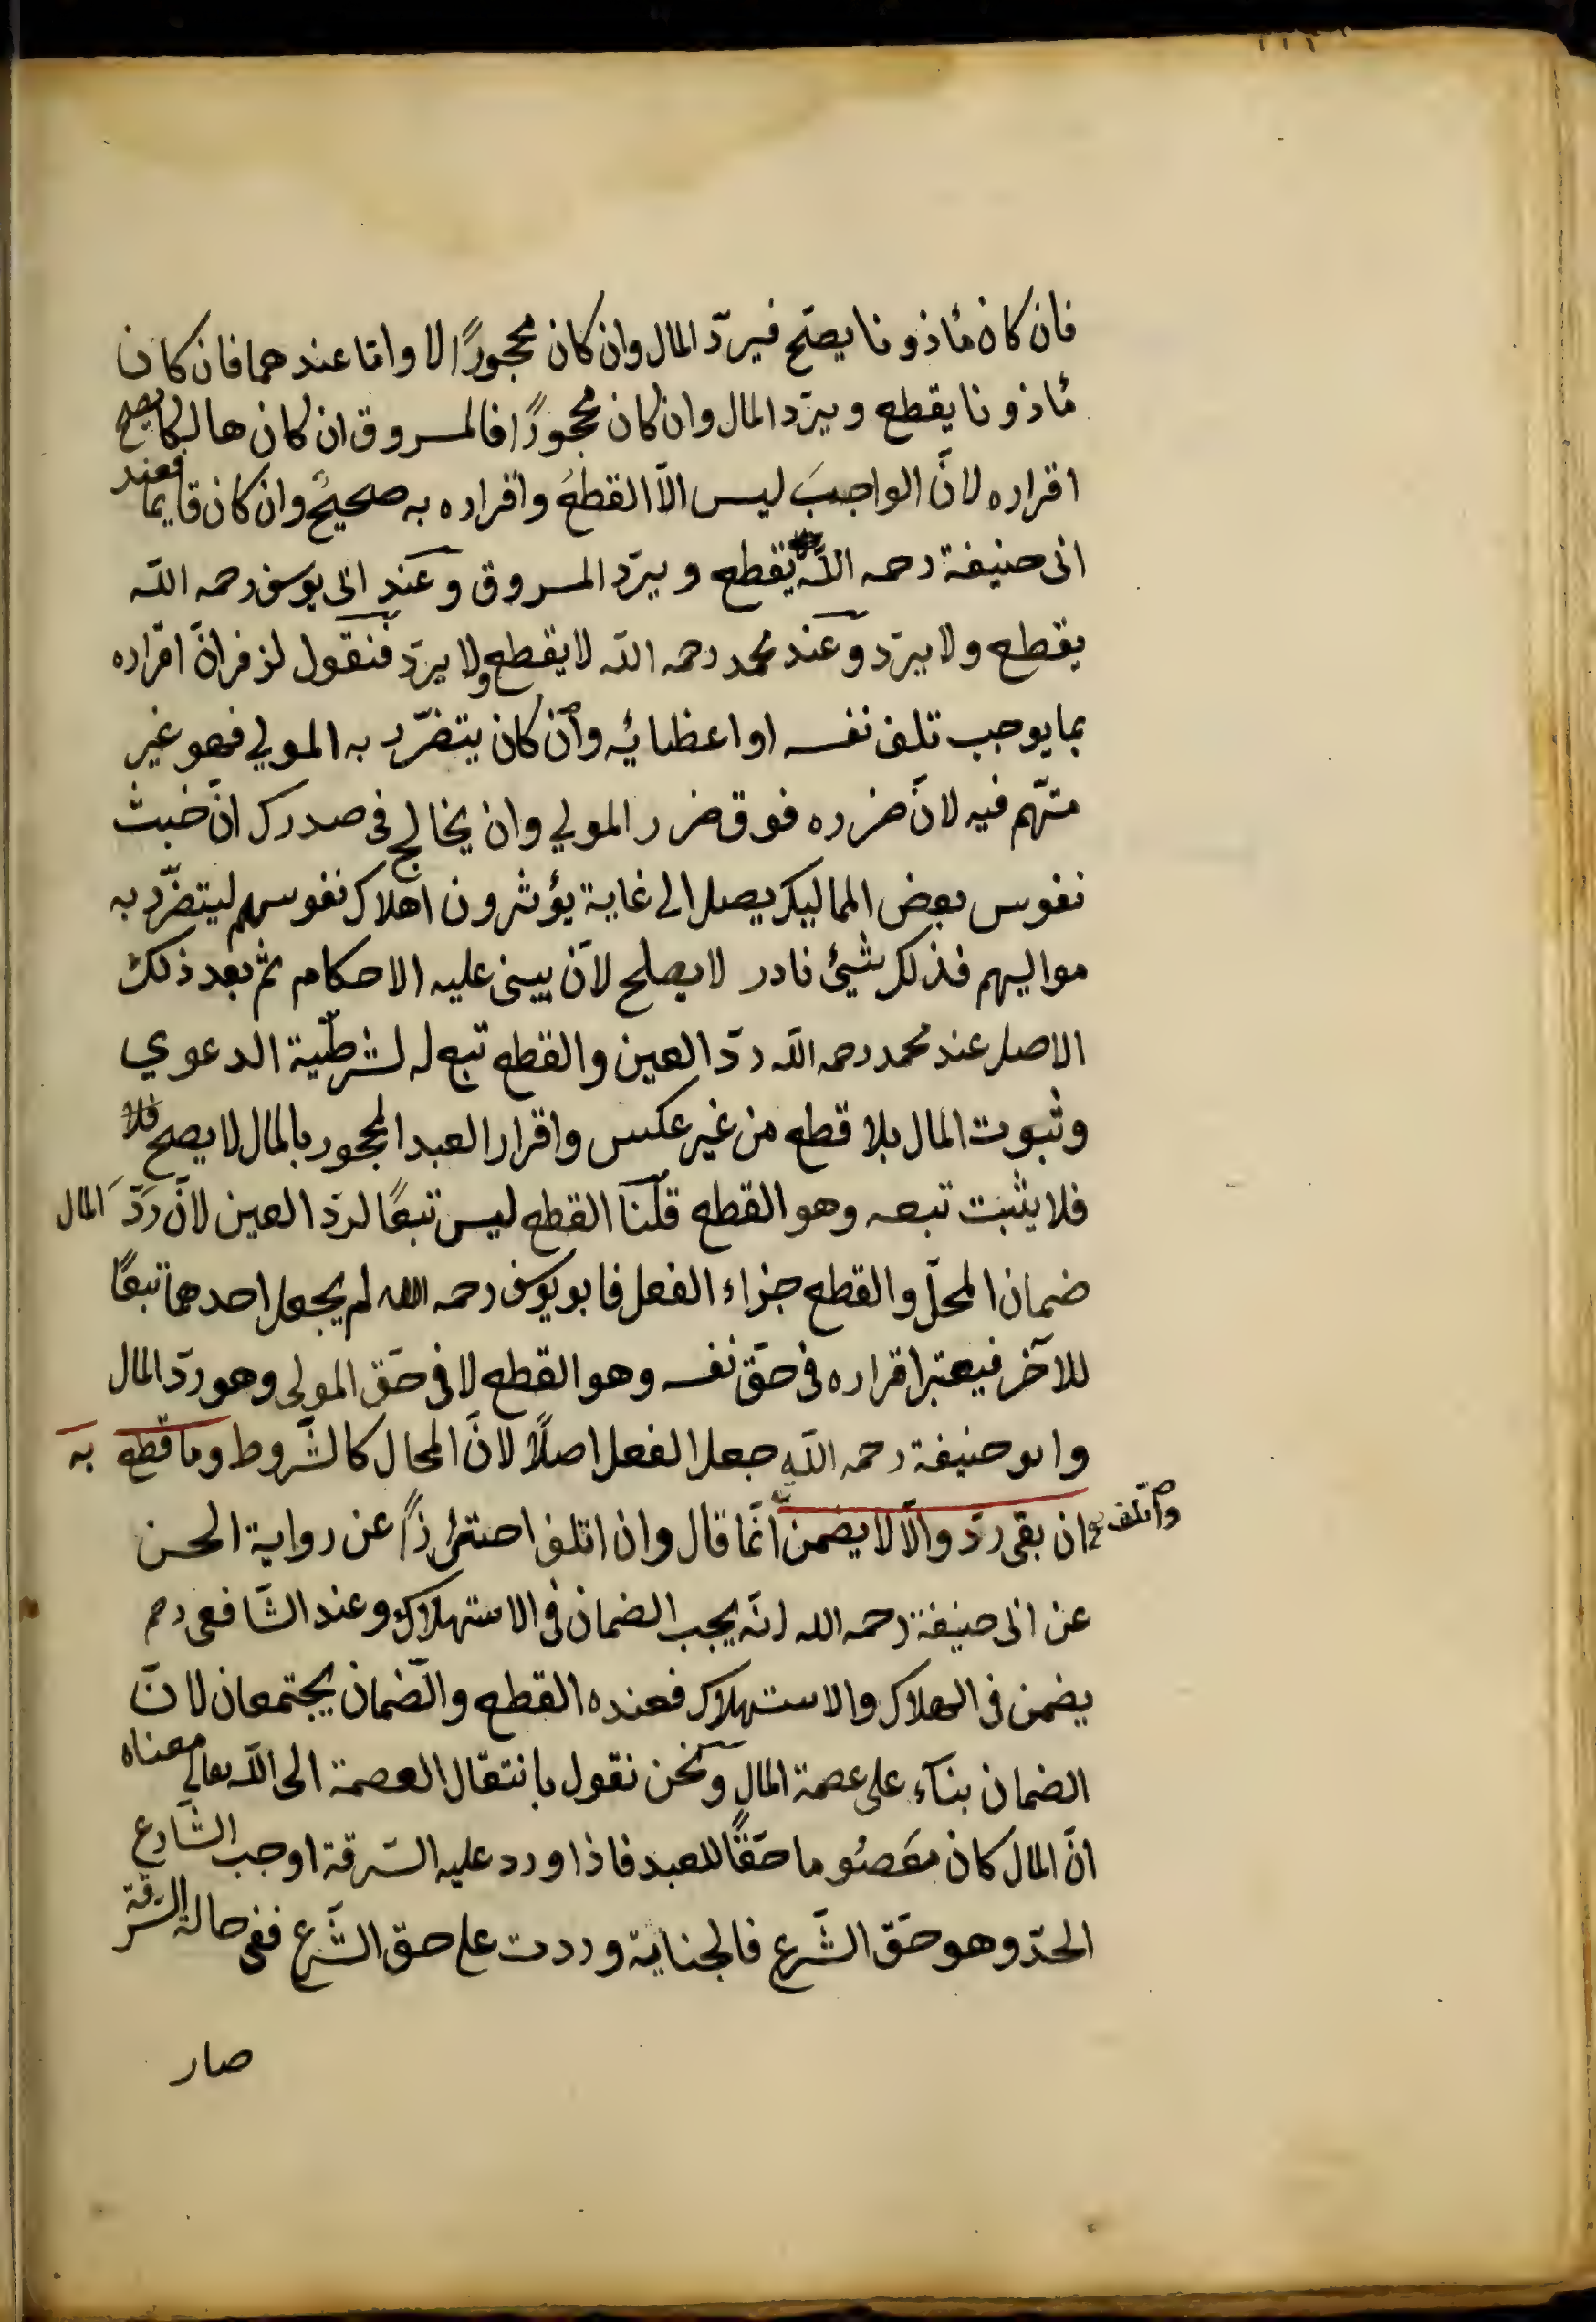 فان كان مٔاذونا يصحّ فيردّ المال وان كان محجورًا لا وامّا عندهما فان كان
مٔاذونا يقطع ويردّ المال وان كان محجورًا فالمسروق ان كان هالكا يصح
اقراره لانّ الواجبَ ليس الّا القطعُ واقراره به صحيحٌ وان كان قايما فعند
ابى حنيفة رحمه اللّه يقطع ويردّ المسروق وعند ابى يوسف رحمه اللّه
يقطع ولا يردّ وعند محمد رحمه اللّه لا يقطع ولا يردّ فنقول لزفر انّ اقراره
بما يوجب تلف نفسه او اعضائه وان كان يتضرّر به المولي فهو غير
متّهم فيه لانّ ضرره فوق ضرر المولي وان يخالج فى صدرك انّ خبث
نفوس بعض المماليك يصل الى غاية يؤثرون اهلاك نفوسهم ليتضرّر به
مواليهم فذلك شيئ نادر لا يصلح لان يبنى عليه الاحكام ثم بعد ذلك
الاصل عند محمد رحمه اللّه ردّ العين والقطع تبع له لشرطيّة الدعوي
وثبوت المال بلا قطع من غير عكس واقرار العبد المحجور بالمال لا يصح فلا
فلا يثبت تبعه وهو القطع قلنا القطع ليس تبعًا لردّ العين لانّ ردّ المال
ضمان المحلّ والقطع جزاء الفعل فابو يوسف رحمه الله لم يجعل احدهما تبعًا
للآخر فيعتبر اقراره فى حقّ نفسه وهو القطع لا فى حقّ المولى وهو ردّ المال
وابو حنيفة رحمه اللّه جعل الفعل اصلًا لانّ المحال كالشّروط وما قطع به
ان بقى ردّ والّا لا يضمن انّما قال وان اتلف احترازًا عن رواية الحسن
وان اتلف صح
عن ابى حنيفة رحمه الله انّه يجب الضمان فى الاستهلاك وعند الشّافعى رحمه
يضمن فى الهلاك والاستهلاك فعنده القطع والضّمان يجتمعان لانّ
الضمان بناء على عصمة المال ونحن نقول بانتقال العصمة الى اللّه تعالي معناه
انّ المال كان معصوما حقًّا للعبد فاذا ورد عليه السّرقة اوجب الشّارع
الحدّ وهو حقّ الشّرع فالجناية وردت على حق الشّرع ففى حالة السّرقة
صار